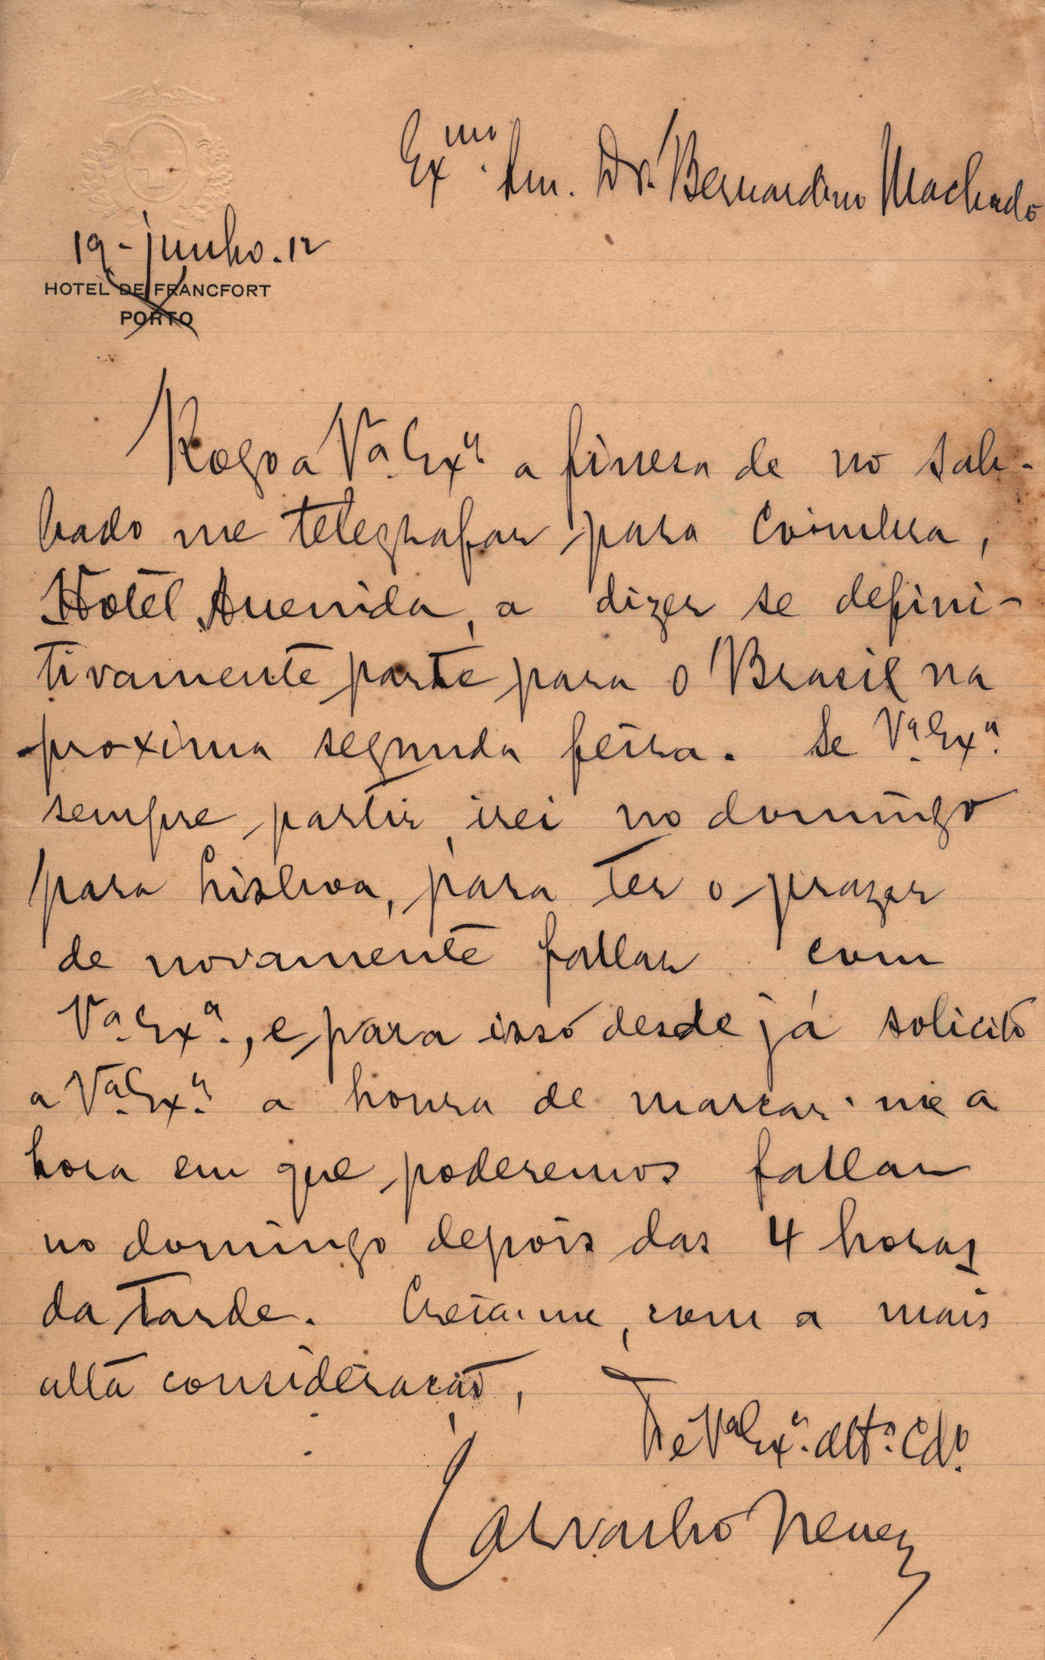 Ex.mo Snr. Dr. Bernardino Machado
19-junho.12
HOTEL DE FRANCFORT
PORTO
Rogo a V.a Ex.a a fineza de no sab-
bado me telegrafar para Coimbra,
Hotel Avenida, a dizer se defini-
tivamente parte para o Brasil na
proxima segunda feira. Se V.a Ex.a
sempre partir, irei no domingo
para Lisboa, para ter o prazer
de novamente fallar com
V.a Ex.a, e para isso desde já solicito
a V.a Ex.a a honra de marcar-me a
hora em que poderemos fallar
no domingo depois das 4 horas
da tarde. Creia-me, com a mais
alta consideração,
De V.a Ex.a att.o Cd.o
Carvalho Neves